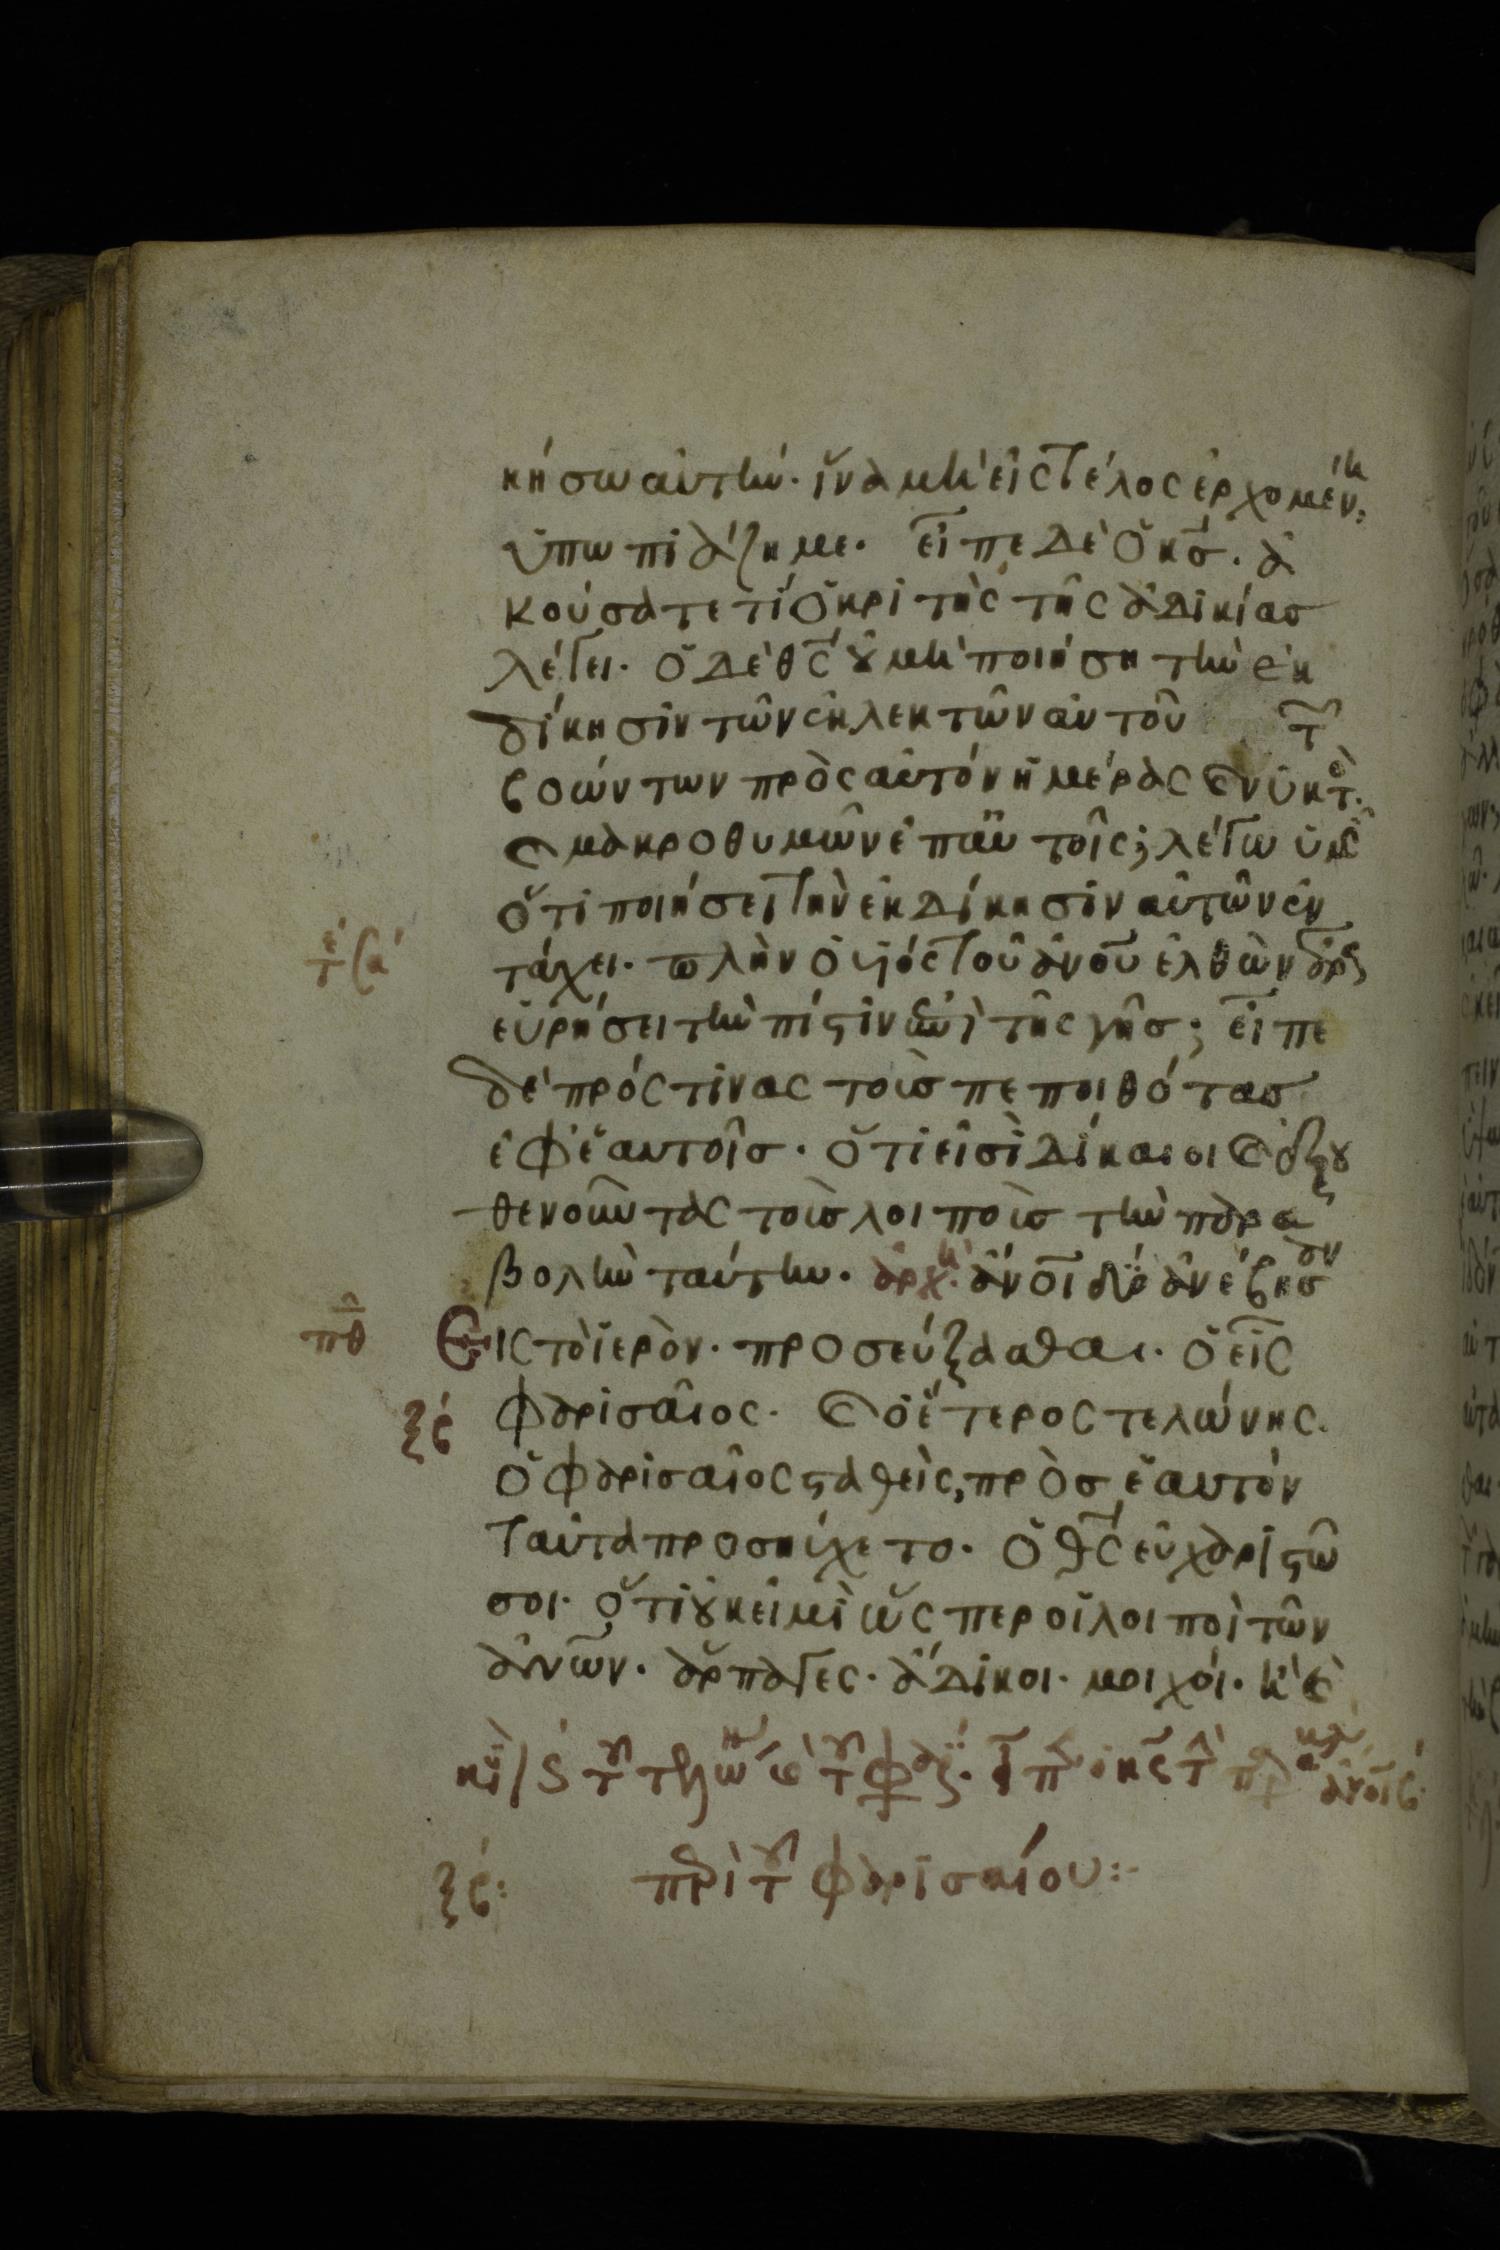 κήσω αὐτήν· ἵνα μὴ εἰς τέλος ἐρχομένη
ὑπωπιάζη με· εἶπε δὲ ὁ κς· ἀ
κούσατε τί ὁ κριτὴς τῆς ἀδικίας
λέγει· ὁ δὲ θς οὐ μὴ ποιήση τὴν ἐκ
δίκησιν τῶν ἐκλεκτῶν αὐτοῦ τῶν
βοώντων πρὸς αὐτὸν ἡμέρας καὶ νυκτὸς·
καὶ μακροθυμῶν ἐπ' αὐτοῖς; λέγω ὑμῖν
ὅτι ποιήσει τὴν ἐκδίκησιν αὐτῶν ἐν
τάχει· πλὴν ὁ υἱὸς τοῦ ἀνου ἐλθὼν ἄρα
εὑρήσει τὴν πίστιν ἐπὶ τῆς γῆς; εἶπε
δὲ πρός τινας τοὺς πεποιθότας
ἐφ' ἑαυτοῖς· ὅτι εἰσὶ δίκαιοι καὶ ἐξου
θενοῦντας τοὺς λοιποὺς τὴν παρα
βολὴν ταύτην· ἀρχ· ἄνοι δύο ἀνέβησαν
Εἰς τὸ ἱερὸν· προσεύξασθαι· ὁ εἷς
φαρισαῖος· καὶ ὁ ἕτερος τελώνης·
ὁ φαρισαῖος σταθεὶς, πρὸς ἑαυτὸν
ταῦτα προσηύχετο· ὁ θς εὐχαριστῶ
σοι· ὅτι οὐκ εἰμὶ ὥσπερ οἱ λοιποὶ τῶν
ἀνων· ἅρπαγες· ἄδικοι· μοιχοί· ἢ καὶ
πθ
ξς
ξς: περὶ τοῦ φαρισαίου: